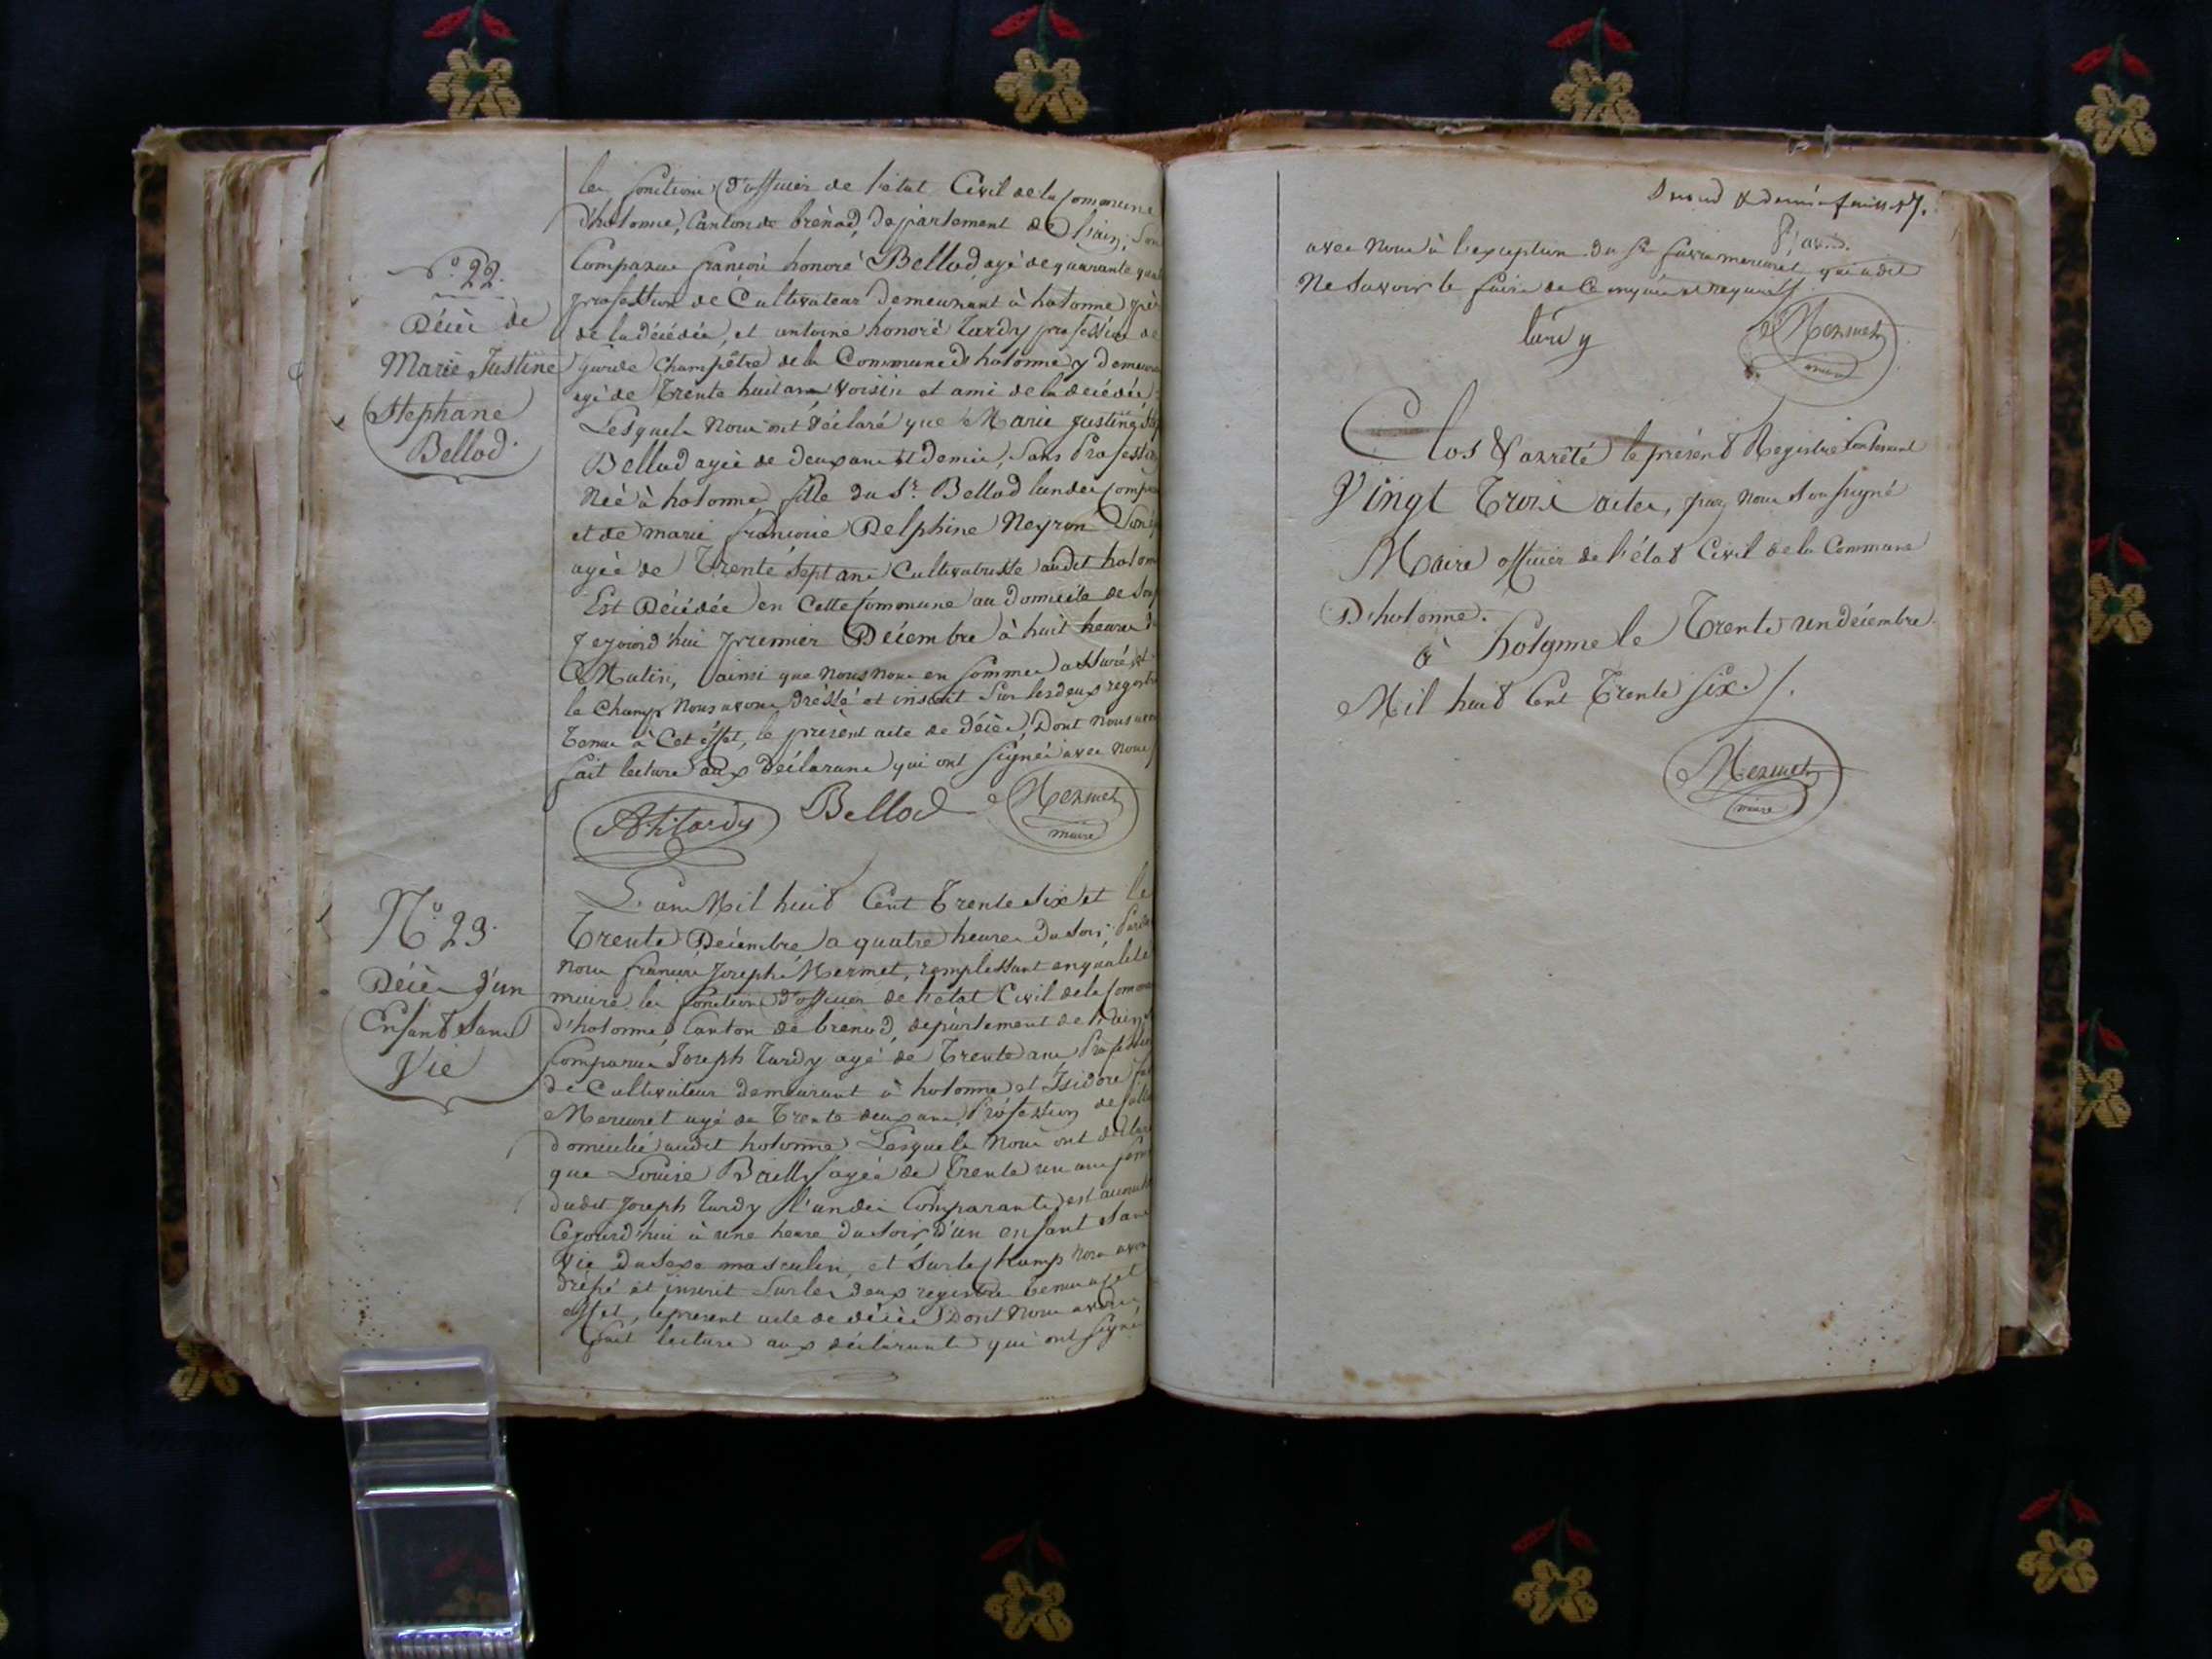 N.º 22.
Décès de
Marie Justine
Stephanie
Bellod.
les fonctions d'officier de l'état Civil de la Commune
d'hotonne, Canton de brenod, Département de l'ain; Sont
Comparus françois honoré Bellod agé de quarante
profession de Cultivateur demeurant à hotonne père
de la décédée, et antoine honoré Tardy profession de
garde Champêtre de la Commune d'hotonne y demeurant
agé de Trente huit ans voisin et ami de la décédée
Lesquels Nous ont déclaré que Marie Justine
Bellod agée de deux ans et demie, Sans Profession
Née à hotonne fille du Sr. Bellod l'un des
et de marie françoise Delphine Neyron Son
agée de Trente Sept ans Cultivatrice audit hotonne
Est Décédée en Cette Commune au domicile de Son
Cejourd'hui premier Décembre à huit heures du
Matin, ainsi que Nous nous en Sommes assuré, et
le Champ Nous avons dréssé et inscrit Sur les deux
Tenus à Cet éffet, le présent acte de décès, Dont nous avons
fait lecture aux déclarans qui ont signés avec nous
AhTardy Bellod Mermet
maire
N.º 23.
Décès d'un
Enfant Sans
Vie
L'an Mil huit Cent Trente Six et le
Trente Décembre a quatre heures du Soir
Nous françois Joseph Mermet, remplissant en qualité de
maire les fonctions d'officier de l'etat Civil de la Commune
d'hotonne Canton de brenod, département de l'ain
Comparus Joseph Tardy agé de Trente ans Profession
de Cultivateur demeurant à hotonne et Isidore
Mercuret agé de Trente deux ans Profession de
domicilié audit hotonne Lesquels Nous ont déclaré
que Louise Bailly agée de Trente un ans
dudit Joseph Tardy l'un des Comparants est
Cejourd'hui à une heure du Soir d'un enfant Sans
Vie du Sexe masculin, et Sur le Champ Nous avons
drésé et inscrit Sur les deux registres tenus a Cet
effet, le present acte de décès Dont Nous avons
fait lecture aux déclarants qui ont Signé
avec Nous à l'exeption du Sr favre mercuret qui a dit
Ne Savoir le faire de Ce enquis et requis
tardy Mermet
maire
Clos & arrêté le présent Registre Contenant
Vingt Trois actes, par Nous Soussigné
Maire officier de l'état Civil de la Commune
D'hotonne.
à hotonne le Trente un décembre
Mil huit Cent Trente Six /.
Mermet
maire